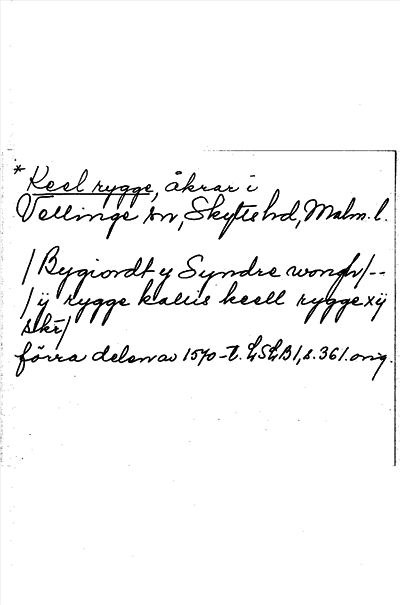 * Keel rygge, åkrar i
Vellinge sn, Skytts hd, Malm. l.
/Bygiordt y Syndre wongh/--
/ij rygge kaliis keell rygge xij
skr/
förra delen av 1570-t. LSLB1, s. 361. orig.